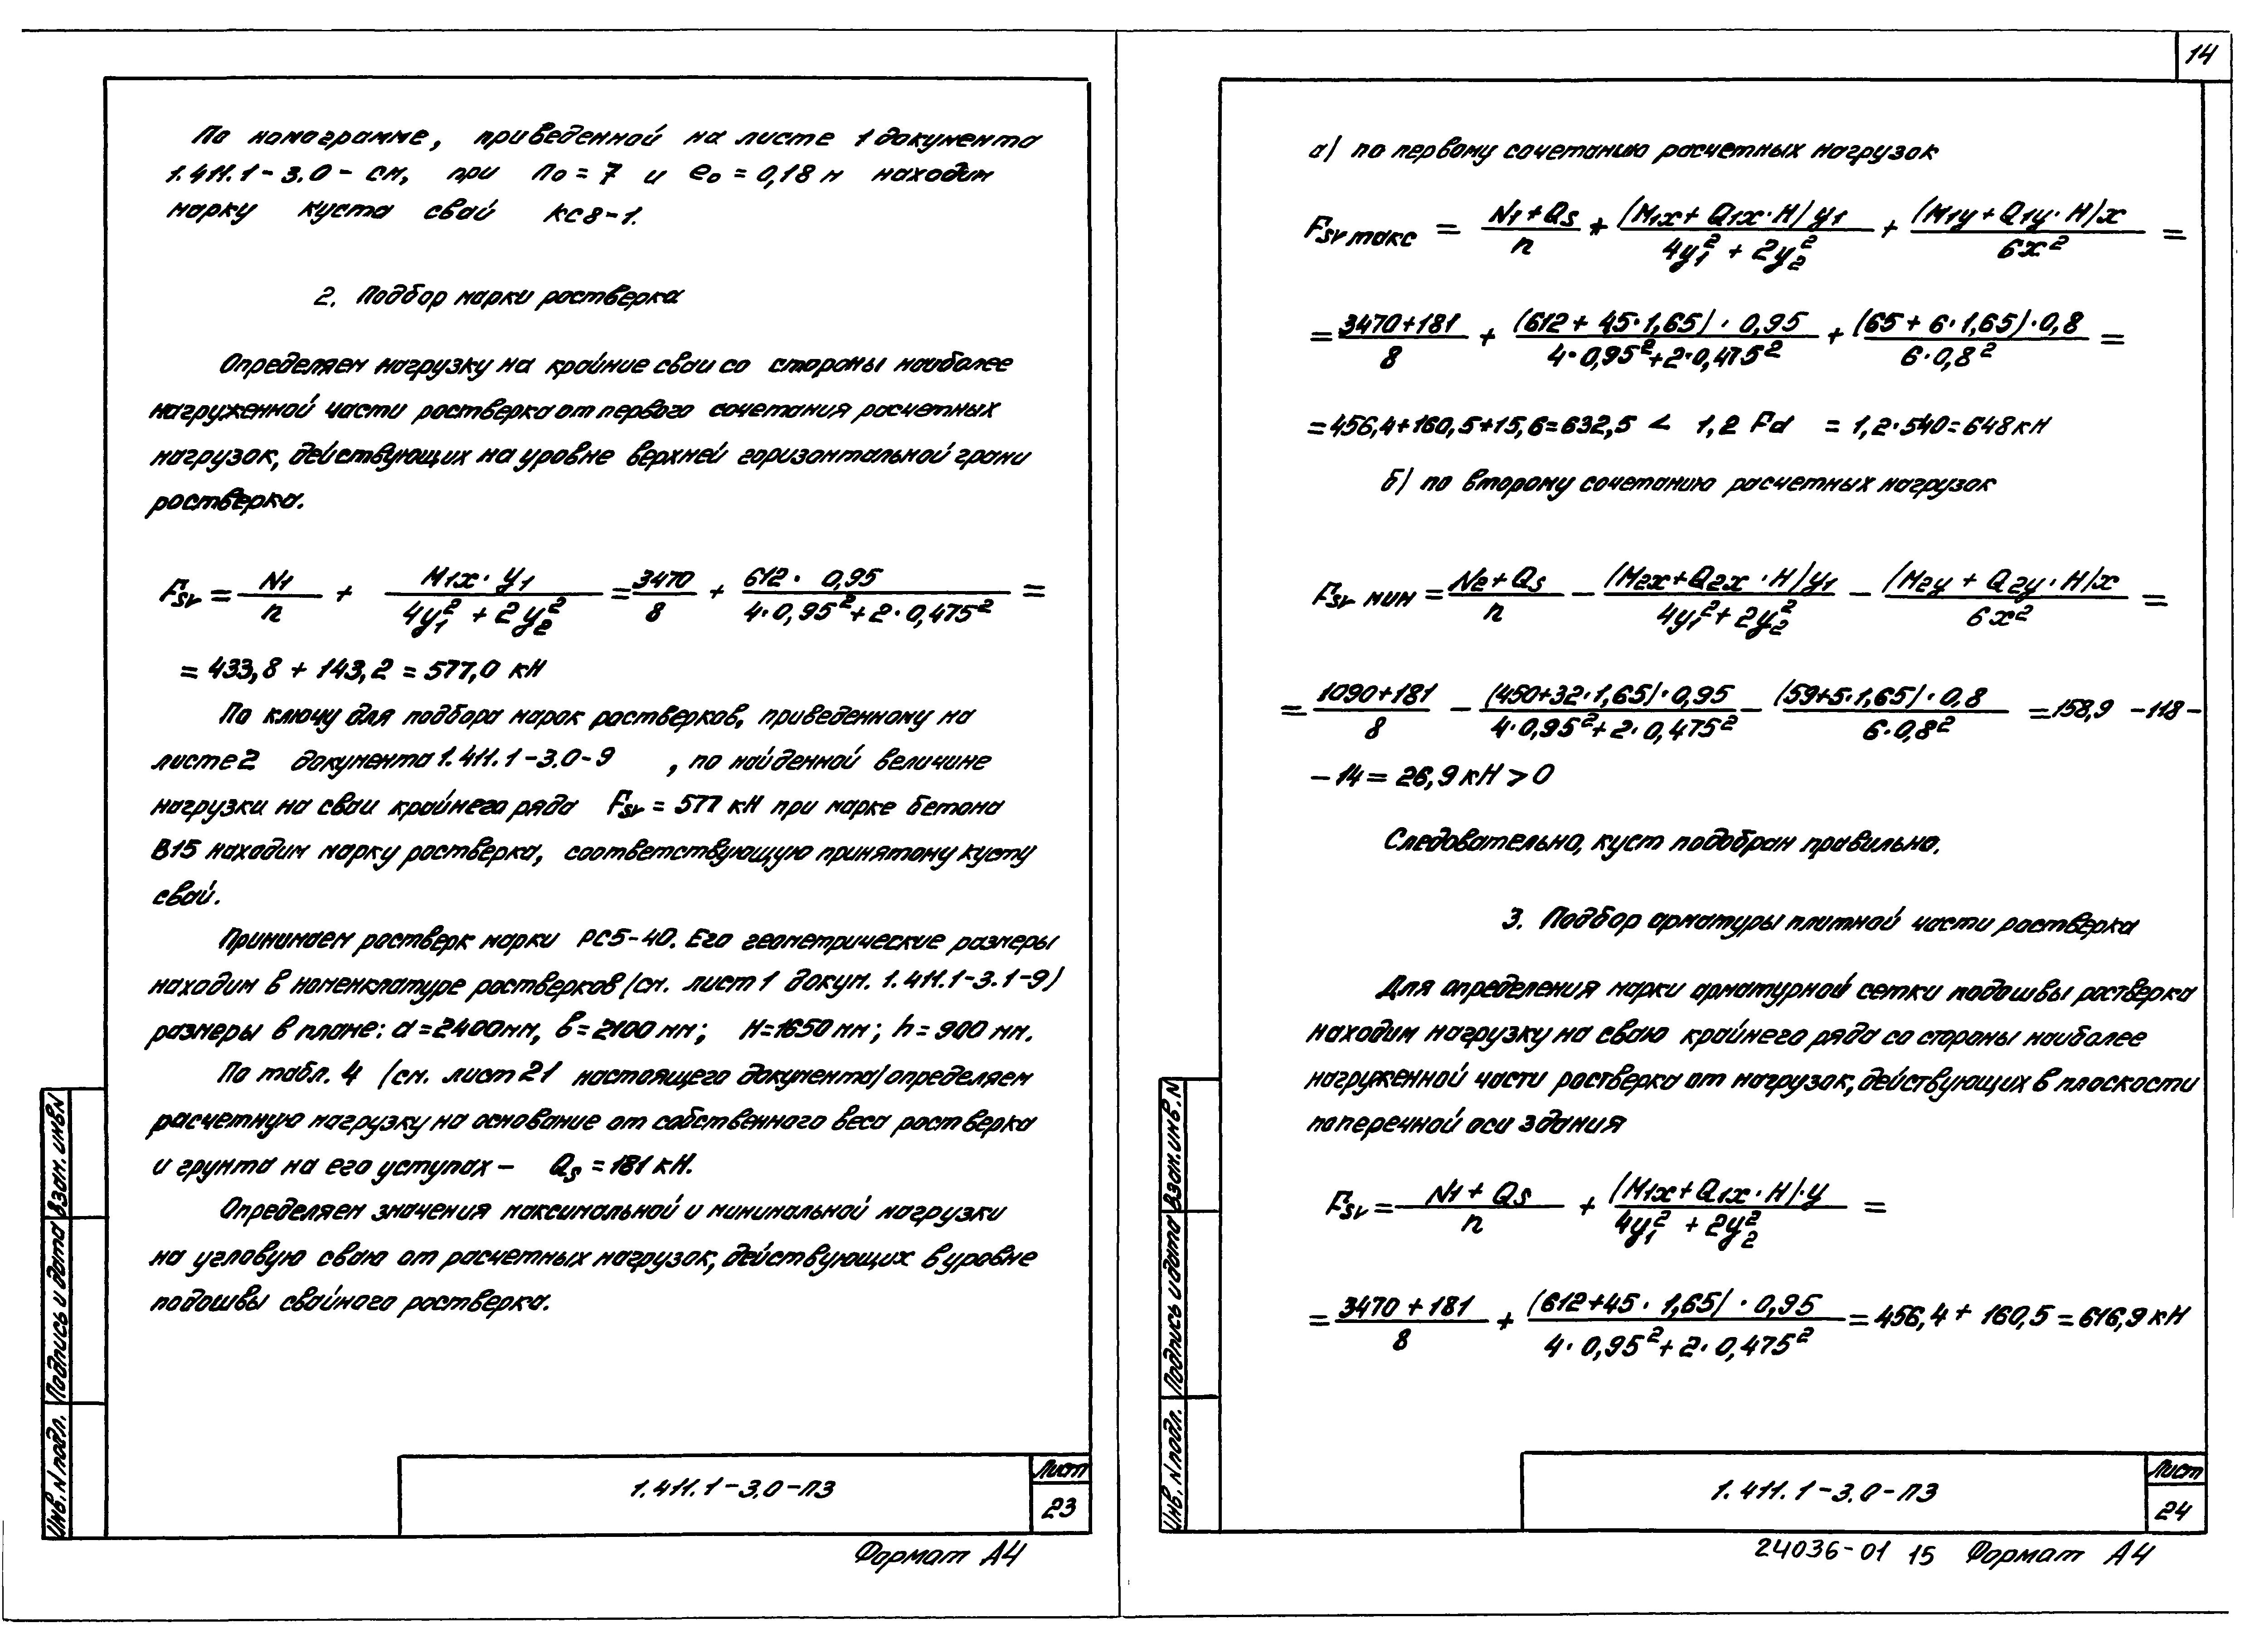 По номограмме, приведенной на листе 1 документа
1.411.1-3.0-см, при n₀ = 7 и e₀ = 0,18 м находим
марку куста свай КС8-1.
2. Подбор марки ростверка
Определяем нагрузку на крайние сваи со стороны наиболее
нагруженной части ростверка от первого сочетания расчетных
нагрузок, действующих на уровне верхней горизонтальной грани
ростверка.
Fsv = N1/n + M1x·y1/(4y1² + 2y2²) = 3470/8 + 612·0,95/(4·0,95² + 2·0,475²) =
= 433,8 + 143,2 = 577,0 кН
По ключу для подбора марок ростверков, приведенному на
листе 2 документа 1.411.1-3.0-9 , по найденной величине
нагрузки на сваи крайнего ряда Fsv = 577 кН при марке бетона
В15 находим марку ростверка, соответствующую принятому кусту
свай.
Принимаем ростверк марки РС5-40. Его геометрические размеры
находим в номенклатуре ростверков (см. лист 1 докум. 1.411.1-3.1-9)
размеры в плане: а = 2400 мм, в = 2100 мм; Н = 1650 мм; h = 900 мм.
По табл. 4 (см. лист 21 настоящего документа) определяем
расчетную нагрузку на основание от собственного веса ростверка
и грунта на его уступах – Qs = 181 кН.
Определяем значения максимальной и минимальной нагрузки
на угловую сваю от расчетных нагрузок, действующих в уровне
подошвы свайного ростверка.
Инв. N подл. Подпись и дата Взам. инв N
1.411.1-3.0-ПЗ
Лист
23
Формат А4
14
а) по первому сочетанию расчетных нагрузок
Fsv макс = (N1 + Qs)/n + (M1x + Q1x·H) y1/(4y1² + 2y2²) + (M1y + Q1y·H)x/(6x²) =
= (3470+181)/8 + (612 + 45·1,65)·0,95/(4·0,95² + 2·0,475²) + (65 + 6·1,65)·0,8/(6·0,8²) =
= 456,4+160,5+15,6=632,5 < 1,2 Fd = 1,2·540=648 кН
б) по второму сочетанию расчетных нагрузок
Fsv мин = (N2 + Qs)/n – (M2x + Q2x·H) y1/(4y1² + 2y2²) – (M2y + Q2y·H)x/(6x²) =
= (1090+181)/8 – (450+32·1,65)·0,95/(4·0,95² + 2·0,475²) – (59+5·1,65)·0,8/(6·0,8²) = 158,9 – 118 –
– 14 = 26,9 кН > 0
Следовательно, куст подобран правильно.
3. Подбор арматуры плитной части ростверка
Для определения марки арматурной сетки подошвы ростверка
находим нагрузку на сваю крайнего ряда со стороны наиболее
нагруженной части ростверка от нагрузок, действующих в плоскости
поперечной оси здания
Fsv = (N1 + Qs)/n + (M1x + Q1x·H)·y/(4y1² + 2y2²) =
= (3470 + 181)/8 + (612+45·1,65)·0,95/(4·0,95² + 2·0,475²) = 456,4 + 160,5 = 616,9 кН
Инв. N подл. Подпись и дата Взам. инв. N
1.411.1-3.0-ПЗ
Лист
24
24036-01 15 Формат А4